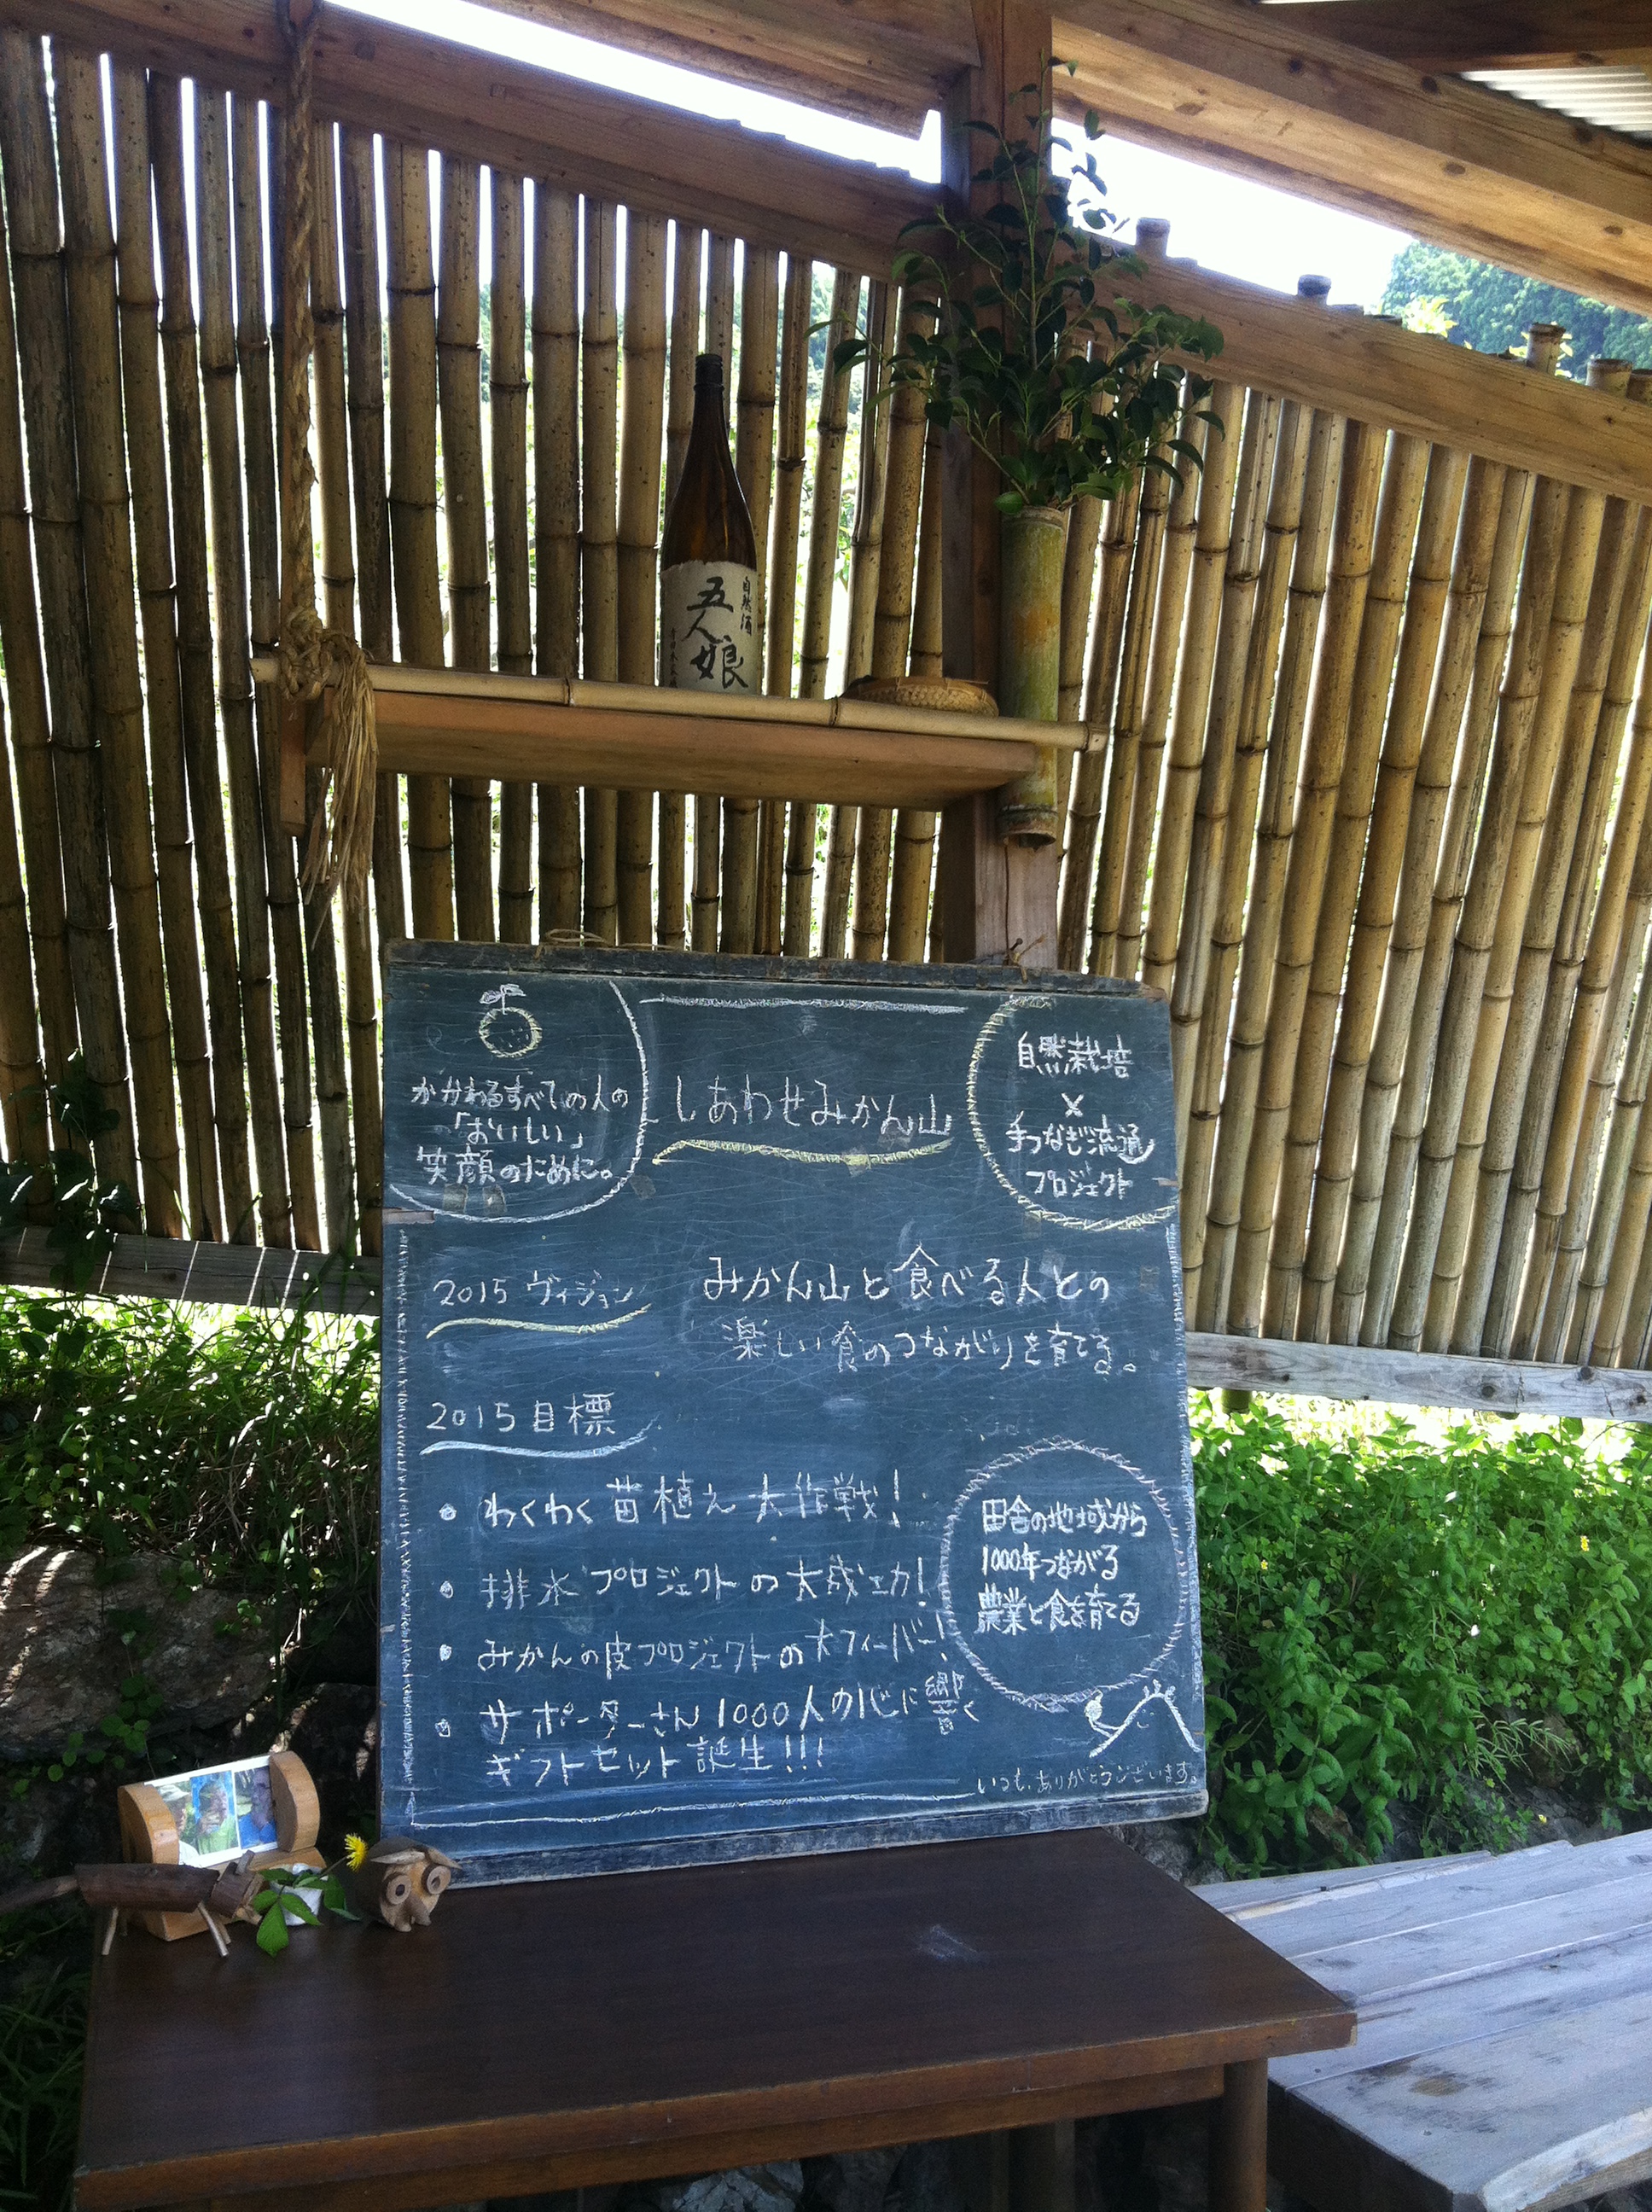 自然酒
五人娘
かかわるすべての人の
「おいしい」
笑顔のために。
しあわせみかん山
自然栽培
×
手つなぎ流通
プロジェクト
2015 ヴィジョン
みかん山と食べる人との
楽しい食のつながりを育てる。
2015 目標
• わくわく苗植え大作戦!
• 排水プロジェクトの大成功!
• みかんの皮プロジェクトの大フィーバー!
• サポーターさん1000人の心に響く
ギフトセット誕生!!!
田舎の地域から
1000年つながる
農業と食を育てる
いつも、ありがとうございます。